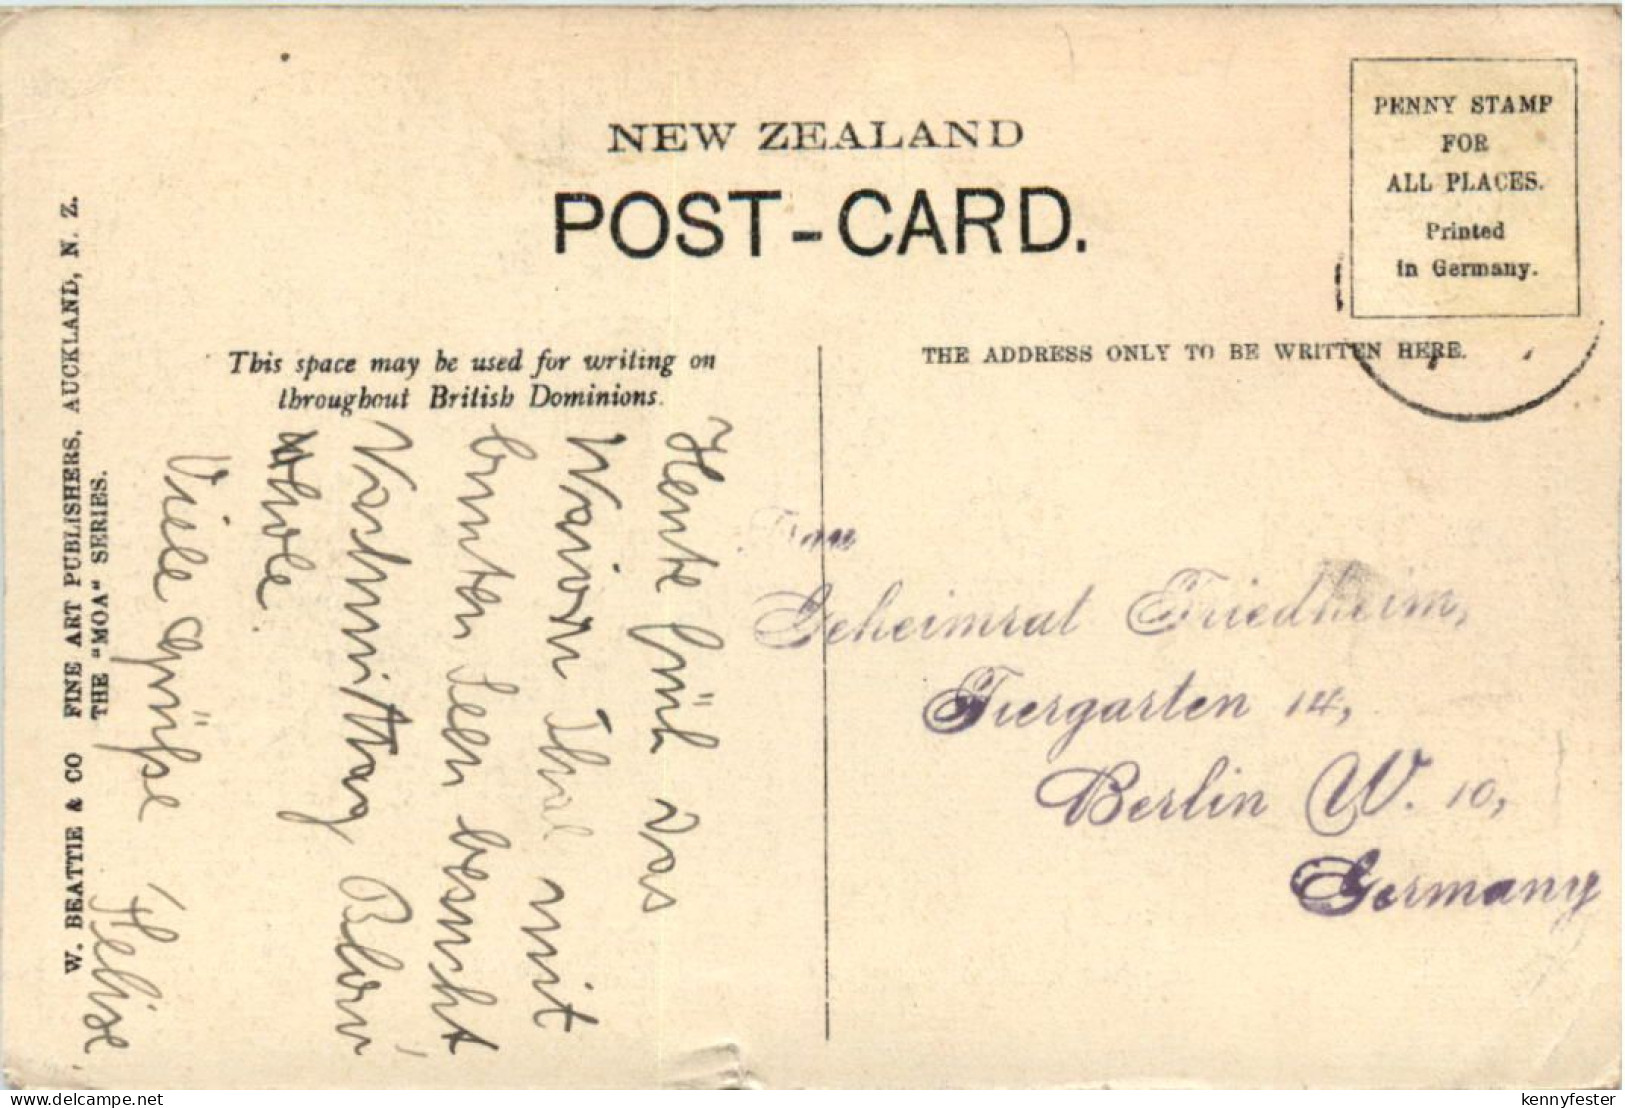 NEW ZEALAND
POST-CARD.
PENNY STAMP
FOR
ALL PLACES.
Printed
in Germany.
This space may be used for writing on
throughout British Dominions.
THE ADDRESS ONLY TO BE WRITTEN HERE.
W. BEATTIE & CO FINE ART PUBLISHERS, AUCKLAND, N. Z.
THE "MOA" SERIES.
Heute früh das
mit
bunten Seen besucht,
Nachmittag
Viele Grüße
Frau
Geheimrat Friedheim,
Tiergarten 14,
Berlin W. 10,
Germany
kennyfester